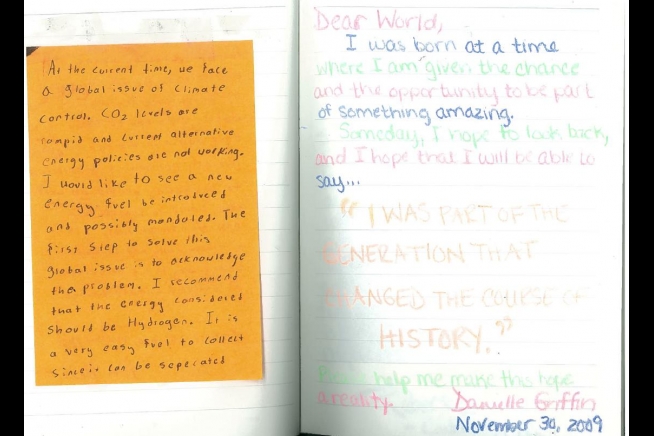 At the current time, we face
a global issue of climate
control. CO2 levels are
rampid and current alternative
energy policies are not working.
I would like to see a new
energy fuel be introduced
and possibly mandated. The
first step to solve this
global issue is to acknowledge
the problem. I recommend
that the energy considered
should be Hydrogen. It is
a very easy fuel to collect
since it can be seperated
Dear World,
I was born at a time
where I am given the chance
and the opportunity to be part
of something amazing.
Someday, I hope to look back,
and I hope that I will be able to
say...
"I WAS PART OF THE
GENERATION THAT
CHANGED THE COURSE OF
HISTORY."
Please help me make this hope
a reality. Danielle Griffin
November 30, 2009